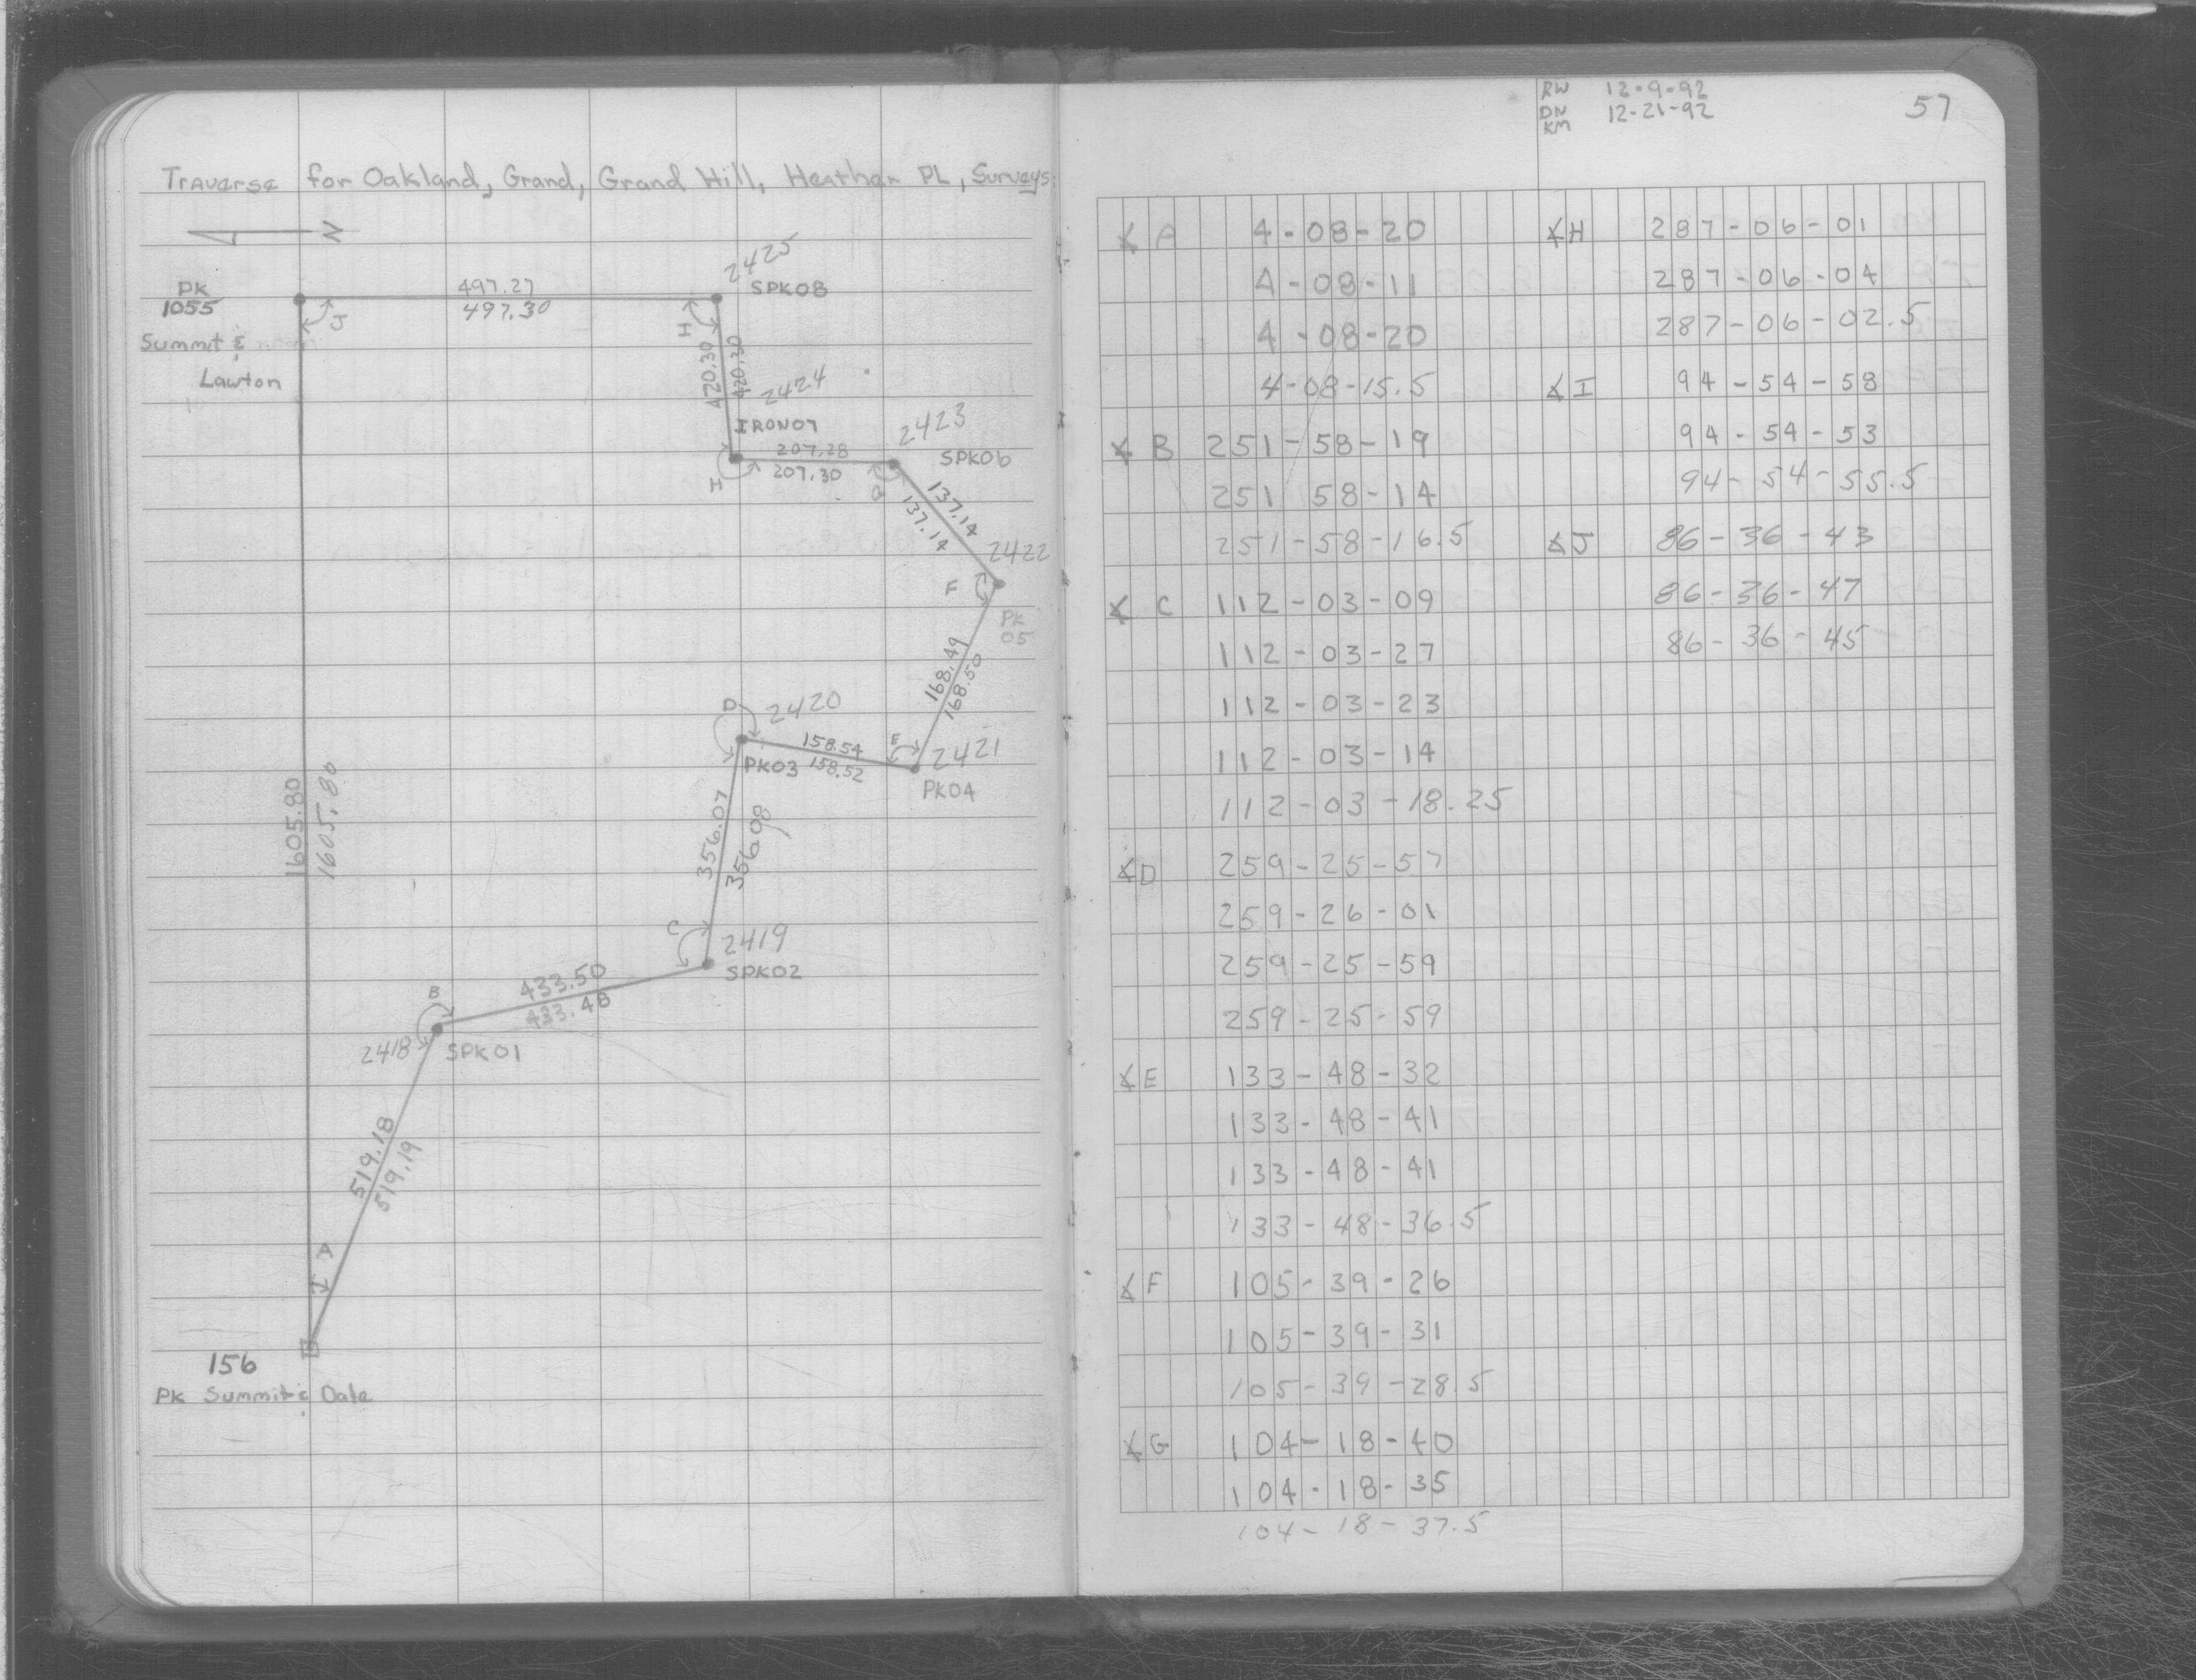 Traverse for Oakland, Grand, Grand Hill, Heather PL, Surveys
N
PK
1055
Summit &
Lawton
497.27
497.30
2425
SPK08
J
H
420.30
420.30
2424
IRON07
207.28
207.30
H
G
2423
SPK06
137.14
137.14
2422
F
PK
05
168.49
168.50
D
2420
PK03
158.54
158.52
E
2421
PK04
1605.80
1605.80
356.07
356.08
C
2419
SPK02
433.50
433.48
B
2418
SPK01
519.18
519.19
A
156
PK Summit & Dale
RW 12-9-92
DN 12-21-92
KM
57
∡ A 4-08-20
4-08-11
4-08-20
4-08-15.5
∡ B 251-58-19
251 58-14
251-58-16.5
∡ C 112-03-09
112-03-27
112-03-23
112-03-14
112-03-18.25
∡ D 259-25-57
259-26-01
259-25-59
259-25-59
∡ E 133-48-32
133-48-41
133-48-41
133-48-36.5
∡ F 105-39-26
105-39-31
105-39-28.5
∡ G 104-18-40
104-18-35
104-18-37.5
∡ H 287-06-01
287-06-04
287-06-02.5
∡ I 94-54-58
94-54-53
94-54-55.5
∡ J 86-36-43
86-36-47
86-36-45